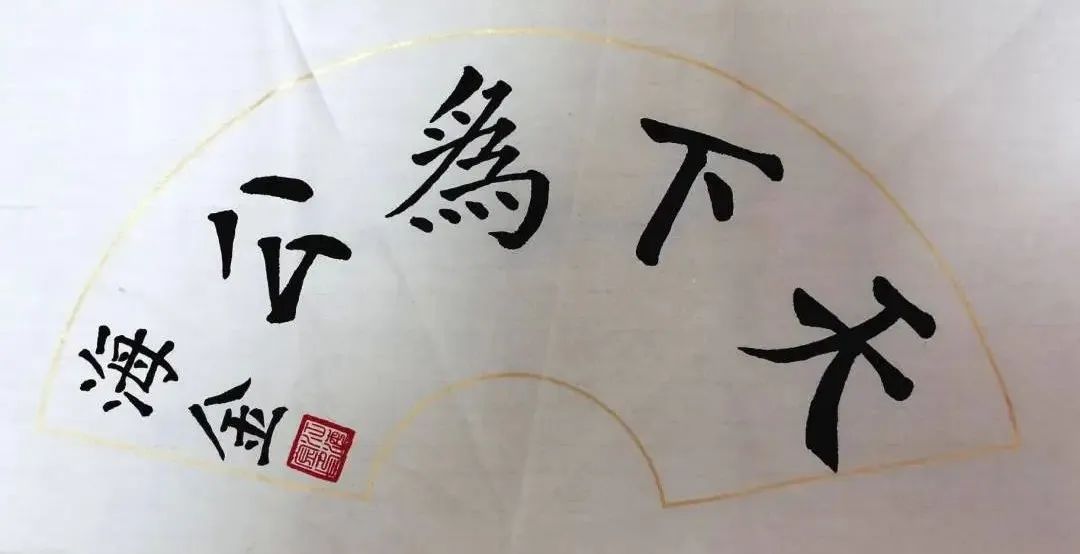 天下為公
海金